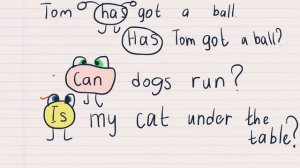 Tom has got a ball
Has Tom got a ball?
Can dogs run?
Is my cat under the
table?